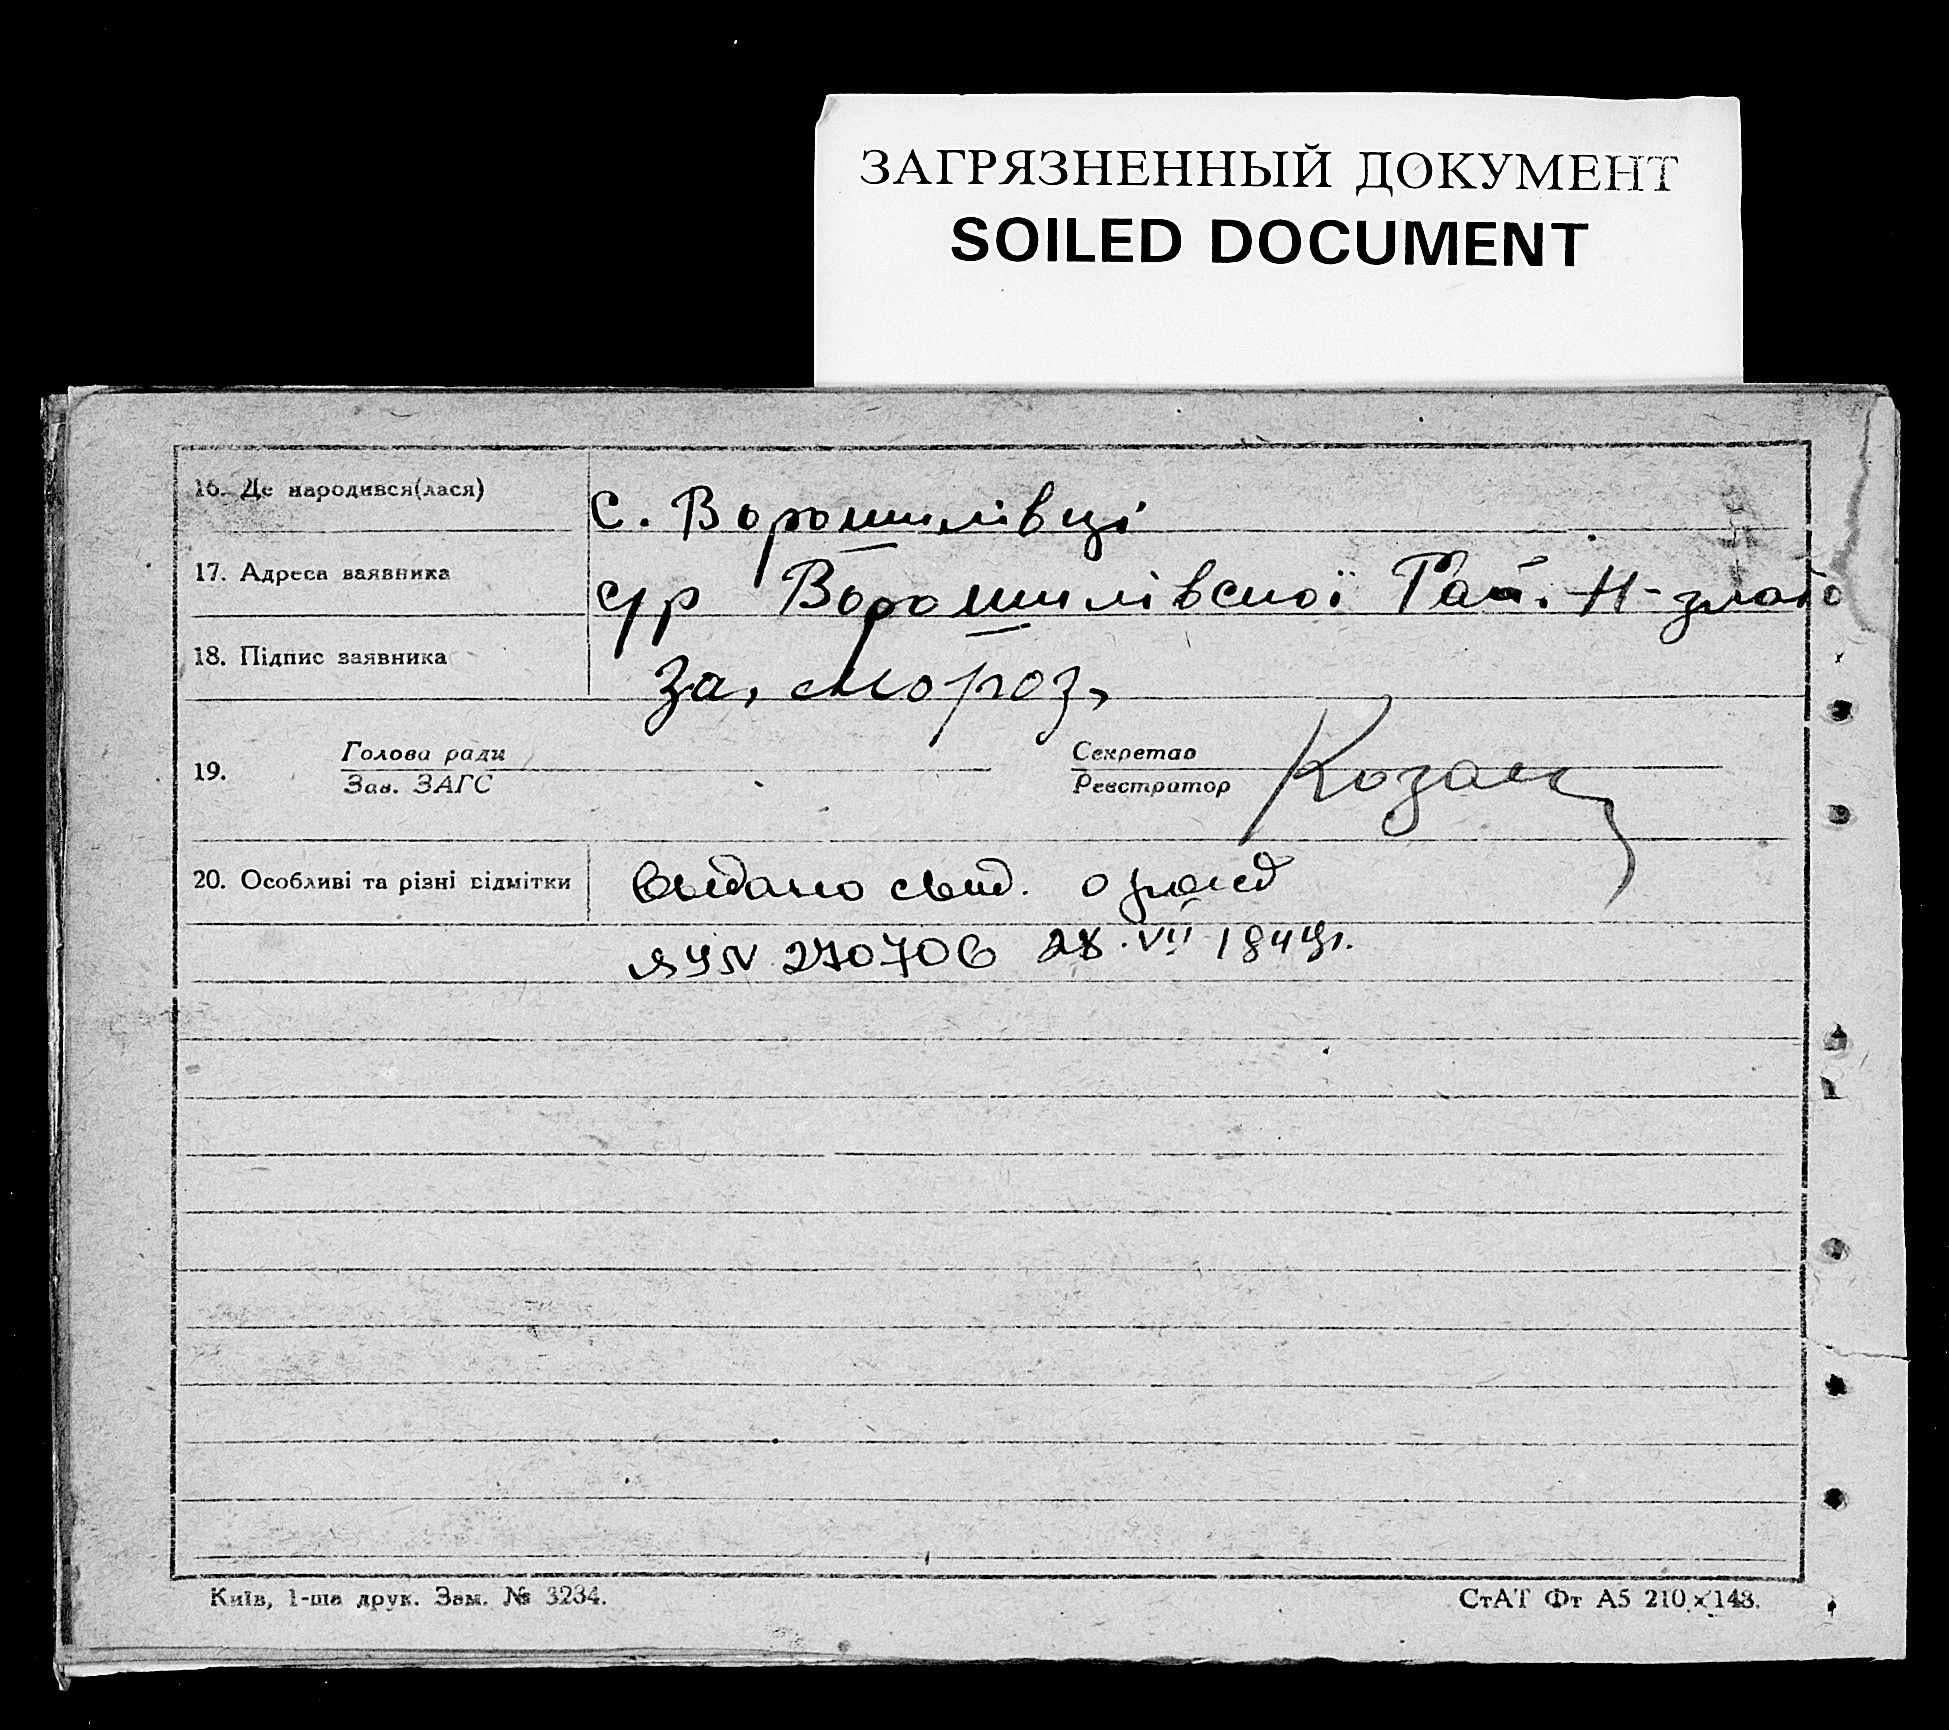 ЗАГРЯЗНЕННЫЙ ДОКУМЕНТ
SOILED DOCUMENT
16. Де народився(лася) с. Ворошилівці
17. Адреса заявника с/р Ворошилівської Рай.
18. Підпис заявника За. Мороз,
19. Голова ради Секретар
Зав. ЗАГС Реєстратор
20. Особливі та різні відмітки Выдано свид. о рожд
270706 28. VII 194
Київ, 1-ша друк. Зам. № 3234. СтАТ Фт А5 210×148.